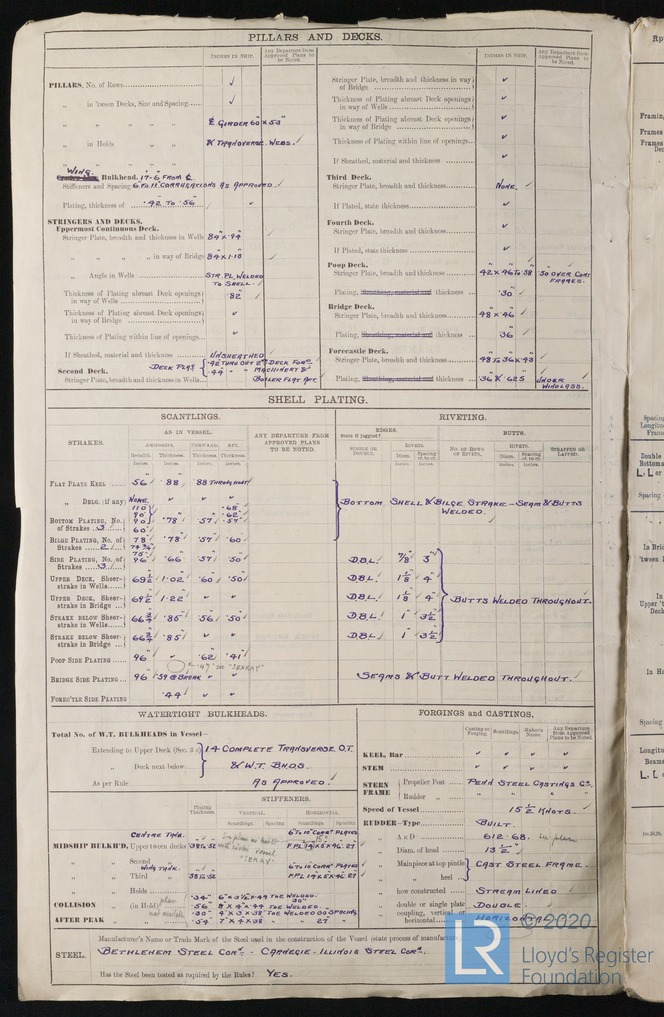 PILLARS AND DECKS.
INCHES IN SHIP.
Any Departure from Approved Plans to be Noted.
PILLARS, No. of Rows ✓
„ in 'tween Decks, Size and Spacing ✓
„ „ „ „ ℄ GIRDER 60" X 53"
„ in Holds „ & TRANSVERSE WEBS. ✓
WING Bulkhead. 17'-6" FROM ℄
Stiffeners and Spacing 6 TO 11" CORRUGATIONS AS APPROVED ✓
Plating, thickness of .42 TO .56 ✓
STRINGERS AND DECKS.
Uppermost Continuous Deck.
Stringer Plate, breadth and thickness in Wells 84" X .94"
„ „ „ „ in way of Bridge 84 X 1.18
„ Angle in Wells STR. PL. WELDED TO SHELL.
Thickness of Plating abreast Deck openings in way of Wells .82 ✓
Thickness of Plating abreast Deck openings in way of Bridge ✓
Thickness of Plating within line of openings ✓
If Sheathed, material and thickness UNSHEATHED
Second Deck. DECK FLAT
Stringer Plate, breadth and thickness in Wells
.42 THRU OUT 2ND DECK FORD
.44 " " MACHINERY &
BOILER FLAT AFT
INCHES IN SHIP.
Any Departure from Approved Plans to be Noted.
Stringer Plate, breadth and thickness in way of Bridge ✓
Thickness of Plating abreast Deck openings in way of Wells ✓
Thickness of Plating abreast Deck openings in way of Bridge ✓
Thickness of Plating within line of openings ✓
If Sheathed, material and thickness ✓
Third Deck.
Stringer Plate, breadth and thickness NONE. ✓
If Plated, state thickness ✓
Fourth Deck.
Stringer Plate, breadth and thickness ✓
If Plated, state thickness ✓
Poop Deck.
Stringer Plate, breadth and thickness 42" X .46 TO .38 .50 OVER CONT FRAMES.
Plating, Sheathing, material and thickness .30
Bridge Deck.
Stringer Plate, breadth and thickness 48" X .46
Plating, Sheathing, material and thickness .36
Forecastle Deck.
Stringer Plate, breadth and thickness 48 TO 36 X .43
Plating, Sheathing, material and thickness .36 & .625 UNDER WINDLASS.
SHELL PLATING.
SCANTLINGS.
RIVETING.
STRAKES.
AS IN VESSEL.
ANY DEPARTURE FROM APPROVED PLANS TO BE NOTED.
EDGES.
State if joggled?
BUTTS.
AMIDSHIPS.
FORWARD.
AFT.
Breadth.
Thickness.
Thickness.
Thickness.
SINGLE OR DOUBLE.
RIVETS.
Diam.
Spacing cr. to cr.
NO. OF ROWS OF RIVETS.
RIVETS.
Diam.
Spacing cr. to cr.
STRAPPED OR LAPPED.
FLAT PLATE KEEL 56" .88 .88 THROUGHOUT
„ DBLG. (if any) NONE. ✓ ✓ ✓
BOTTOM PLATING, No. of Strakes 3 110 90 90 60 .78 .57 .68 .62 .57
BILGE PLATING, No. of Strakes 2 78" 74¾" .78 .57 .60
SIDE PLATING, No. of Strakes 3 75" 96 .66 .57 .50
UPPER DECK, Sheerstrake in Wells 69½ 1.02 .60 .50
UPPER DECK, Sheerstrake in Bridge 69½ 1.22 ✓ ✓
STRAKE BELOW Sheerstrake in Wells 66¾ .85 .56 .50
STRAKE BELOW Sheerstrake in Bridge 66¾ .85 ✓ ✓
POOP SIDE PLATING 96" ✓ .62 .41
.47 on "SEAKAY"
BRIDGE SIDE PLATING 96 .59 @ BREAK ✓ ✓
FOREC'TLE SIDE PLATING .44 ✓ ✓
BOTTOM SHELL & BILGE STRAKE – SEAM & BUTTS WELDED.
DBL. 7/8" 3"
DBL. 1⅛ 4"
DBL. 1⅛ 4"
DBL. 1" 3½
DBL. 1" 3½
BUTTS WELDED THROUGHOUT.
SEAMS & BUTT WELDED THROUGHOUT.
WATERTIGHT BULKHEADS.
Total No. of W.T. BULKHEADS in Vessel—
Extending to Upper Deck (Sec. 3 )
„ Deck next below
As per Rule
14 COMPLETE TRANSVERSE O.T.
& W.T. BHDS.
AS APPROVED.
Plating Thickness.
STIFFENERS.
VERTICAL.
HORIZONTAL.
Scantlings.
Spacing
Scantlings.
Spacing
CENTRE TANK.
MIDSHIP BULKH'D, Upper tween decks .38 TO .52 6 TO 10" CORRD PLATES
F.PL 14 X 5 X .46 27
„ „ Second „
WING TANK.
„ „ Third „ .38 TO .52 6 TO 10" CORRD PLATES
F.PL 14 X 5 X .46 27
„ „ Holds
COLLISION „ (in Hold) .34" 6" X 3½" X .44 TOE WELDED.
.56 8 X 4 X .44 TOE WELDED 30"
AFTER PEAK „ .30" 4 X 3 X .38 TOE WELDED 30 SPACING
.54 7 X 4 X .38 27
plan not available
FORGINGS and CASTINGS.
Casting or Forging.
Scantlings.
Maker's Name.
Any Departure from Approved Plans to be Noted.
KEEL, Bar ✓ ✓ ✓ ✓
STEM ✓ ✓ ✓ ✓
STERN FRAME Propeller Post PENN STEEL CASTINGS CO.
Rudder „ " " "
Speed of Vessel 15½ KNOTS.
RUDDER—Type BUILT.
„ A x D 612.68. see plan
„ Diam. of head 13½"
„ Mainpiece at top pintle CAST STEEL FRAME.
„ „ heel
„ how constructed STREAM LINED
„ double or single plate DOUBLE.
„ coupling, vertical or horizontal HORIZONTAL
STEEL.
Manufacturer's Name or Trade Mark of the Steel used in the construction of the Vessel (state process of manufacture)
BETHLEHEM STEEL CORN. - CARNEGIE - ILLINOIS STEEL CORN.
Has the Steel been tested as required by the Rules? YES.
© 2020
LR
Lloyd's Register
Foundation